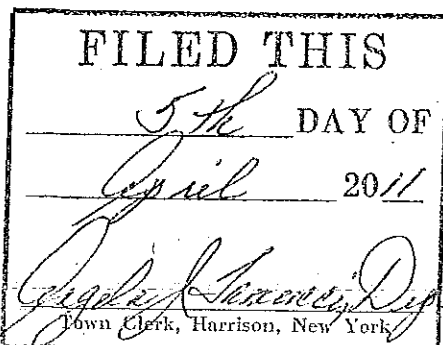 FILED THIS
5th DAY OF
April 2011
Dep
Town Clerk, Harrison, New York